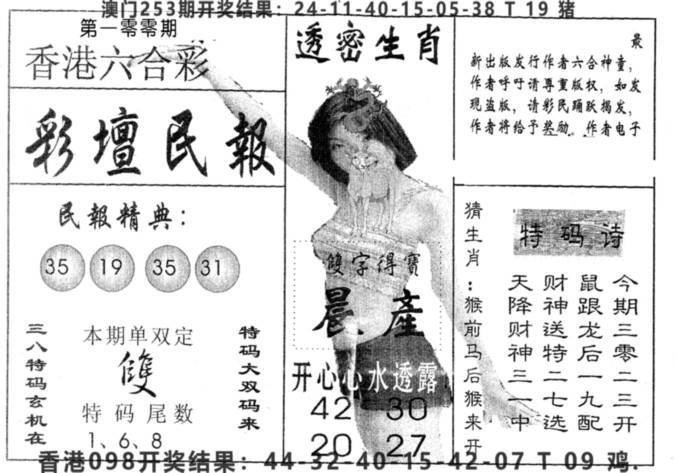 澳门253期开奖结果：24-11-40-15-05-38 T 19 猪
第一零零期
香港六合彩
彩壇民報
民報精典：
35 19 35 31
三八特码玄机在
本期单双定
雙
特码尾数
1、6、8
特码大双码来
透密生肖
雙字得寶
晨產
开心心水透露
42 30
20 27
最
新出版发行作者六合神童，
作者呼吁请尊重版权，如发
现盗版，请彩民踊跃揭发，
作者将给予奖励。作者电子
猜生肖：猴前马后猴来开
特码诗
今期三零二三开
鼠跟龙后一九配
财神送特二七选
天降财神三一中
香港098开奖结果：44-32-40-15-42-07 T 09 鸡.